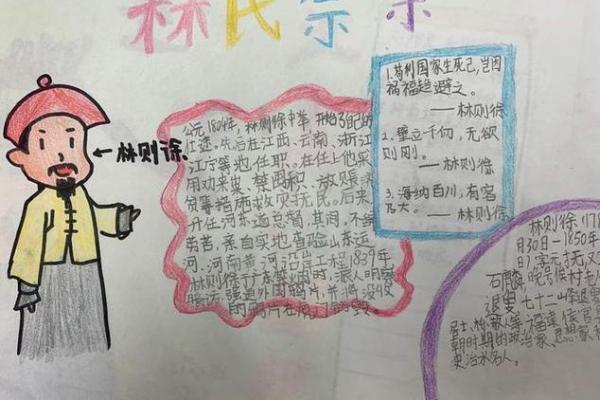 林氏宗
←林则徐
公元1804年,林则徐中举,开始了自己的
仕途。先后在江西、云南、浙江
江宁等地任职。在任上他采
用劝采粜、禁囤积、放赈
贫等措施救灾抚民。后来
升任河东道总督,其间,不辞
劳苦,亲自实地查验山东运
河、河南黄河沿岸工程,1839年
林则徐于广东禁烟时,派人明察
暗访,强迫外国鸦片,并将没收
的鸦片在虎门销毁。
1.苟利国家生死已,岂因
祸福趋避之。
——林则徐
2.壁立千仞,无欲
则刚。
——林则徐
3.海纳百川,有容
乃大。——林则徐
林则徐(178
月30日-1850年
日),字元抚,又
石麟,晚号俟村老
退叟,七十二峰退叟
居士、栎社散人等,福建侯官县
朝时期的政治家、思想家
史治水名人。